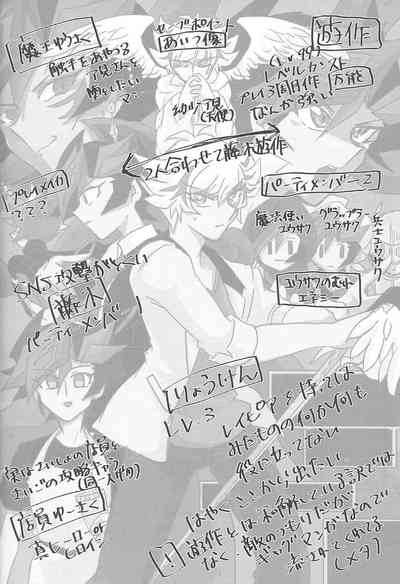 セーブポイント
あいつ像
幼少了見
(天使)
魔王ゆうさく
触手をあやつる
了見さんを
遊作
(Lv99)
レベルカンスト
プレイ3周目遊作
万能
なんか強い
2人合わせて藤木遊作
プレイメイカー
???
パーティメンバー2
魔法使い
ユウサク
グラップラー
ユウサク
兵士ユウサク
ユウサクのむれ
エネミー
SNS攻撃がとくい
藤木
パーティメンバー
りょうけん
LV.3
レイピアを持っては
みたものの何から何も
役に立ってない
はやくここから出たい
遊作とは和解している訳では
なく、敵のつもりだが
ギャグマンガなので
(メタ)
実はさいしょの店員も
さいごの攻略キャラ
(同一人物)
店員ゆーさく
真ヒーローor
ヒロイン